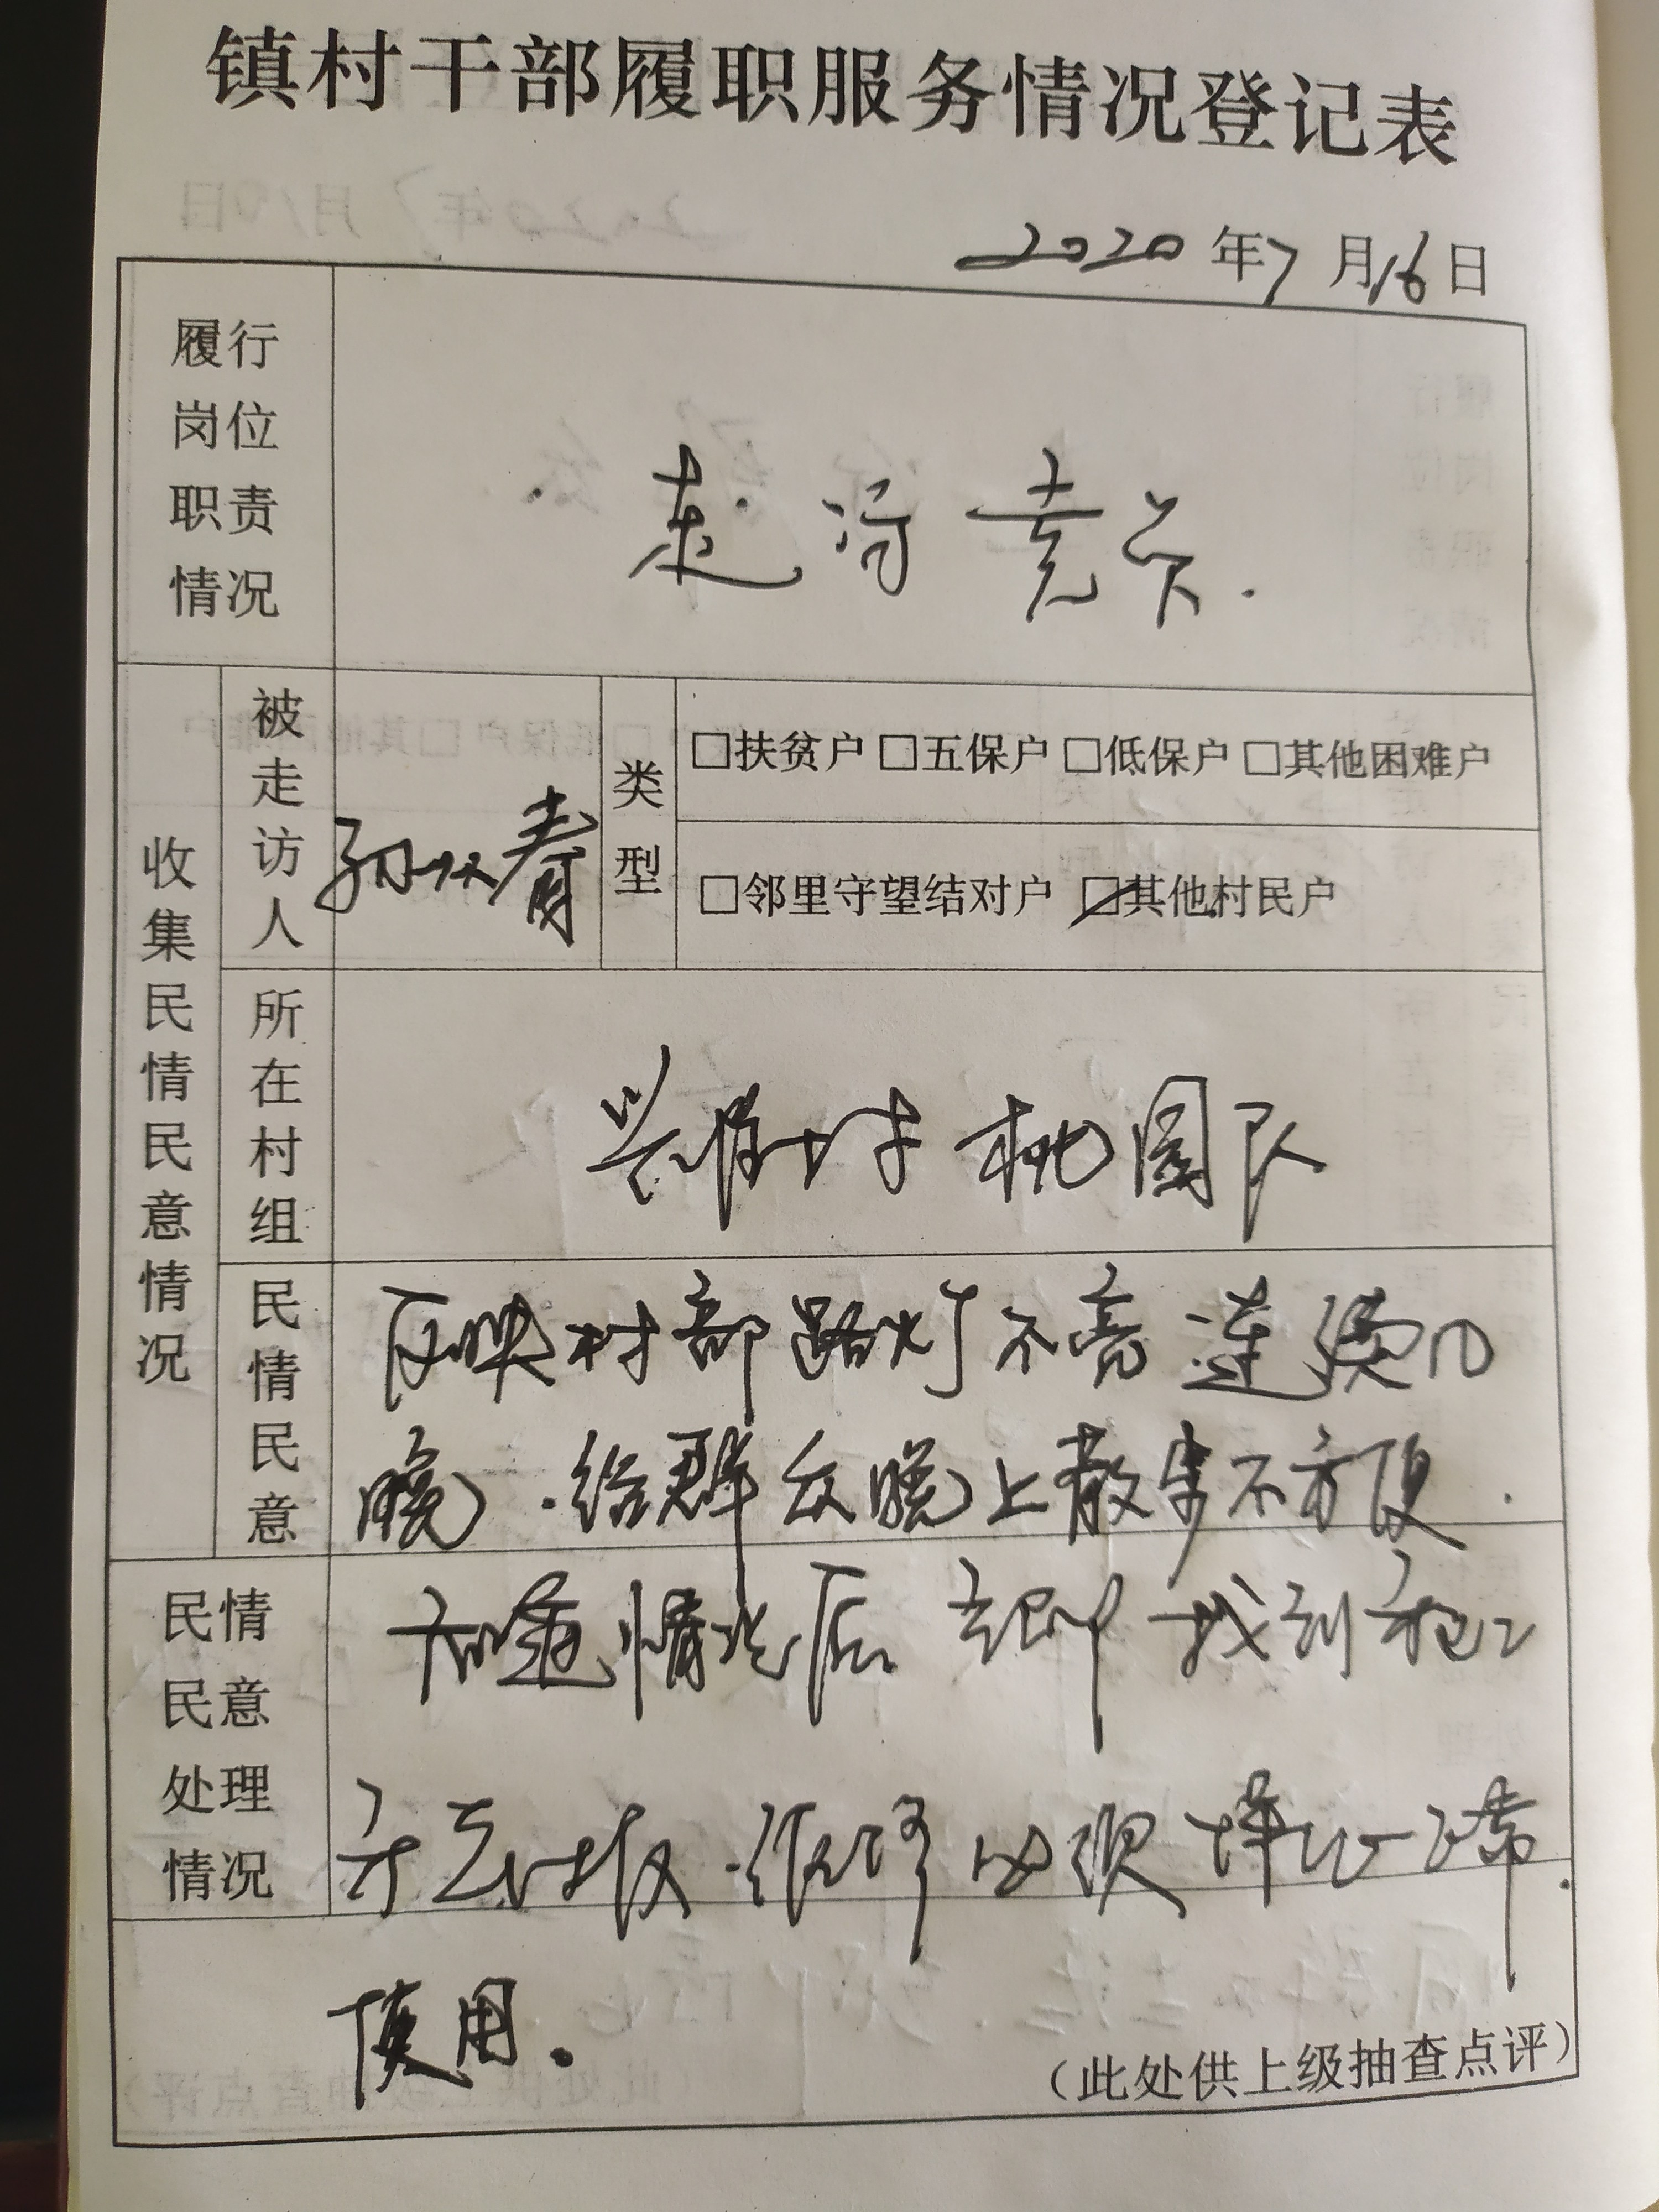 镇村干部履职服务情况登记表
2020年7月16日
履行岗位职责情况
走访党员.
收集民情民意情况
被走访人
孙 青
类型
□扶贫户 □五保户 □低保户 □其他困难户
□邻里守望结对户 ☑其他村民户
所在村组
兴 村 桃园队
民情民意
反映村部路灯不亮连续几
晚.给群众晚上散步不方便.
民情民意处理情况
知道情况后立即找到
维修 正常
使用。
（此处供上级抽查点评）